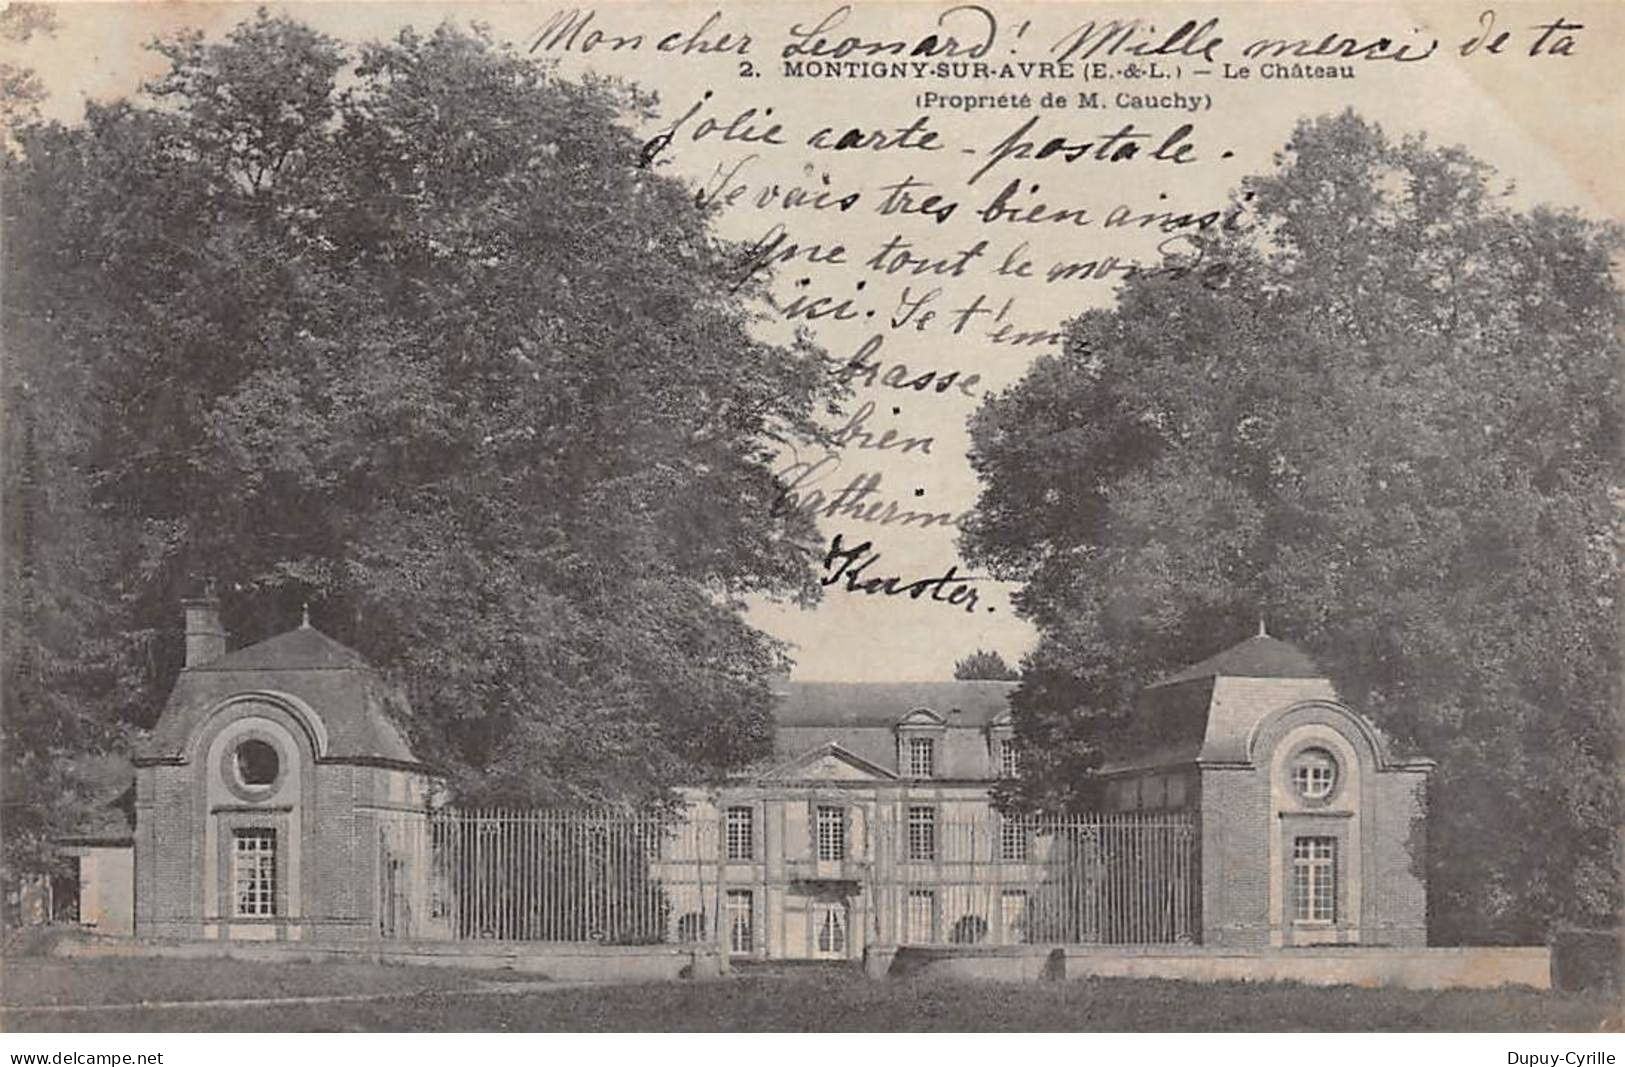 Mon cher Leonard! Mille merci de ta
2. MONTIGNY-SUR-AVRE (E.-&-L.) — Le Château
(Propriété de M. Cauchy)
jolie carte-postale.
Je vais tres bien ainsi
que tout le monde
ici. Je t'em
brasse
bien
Catherine
Kuster.
delcampe.net
Dupuy-Cyrille